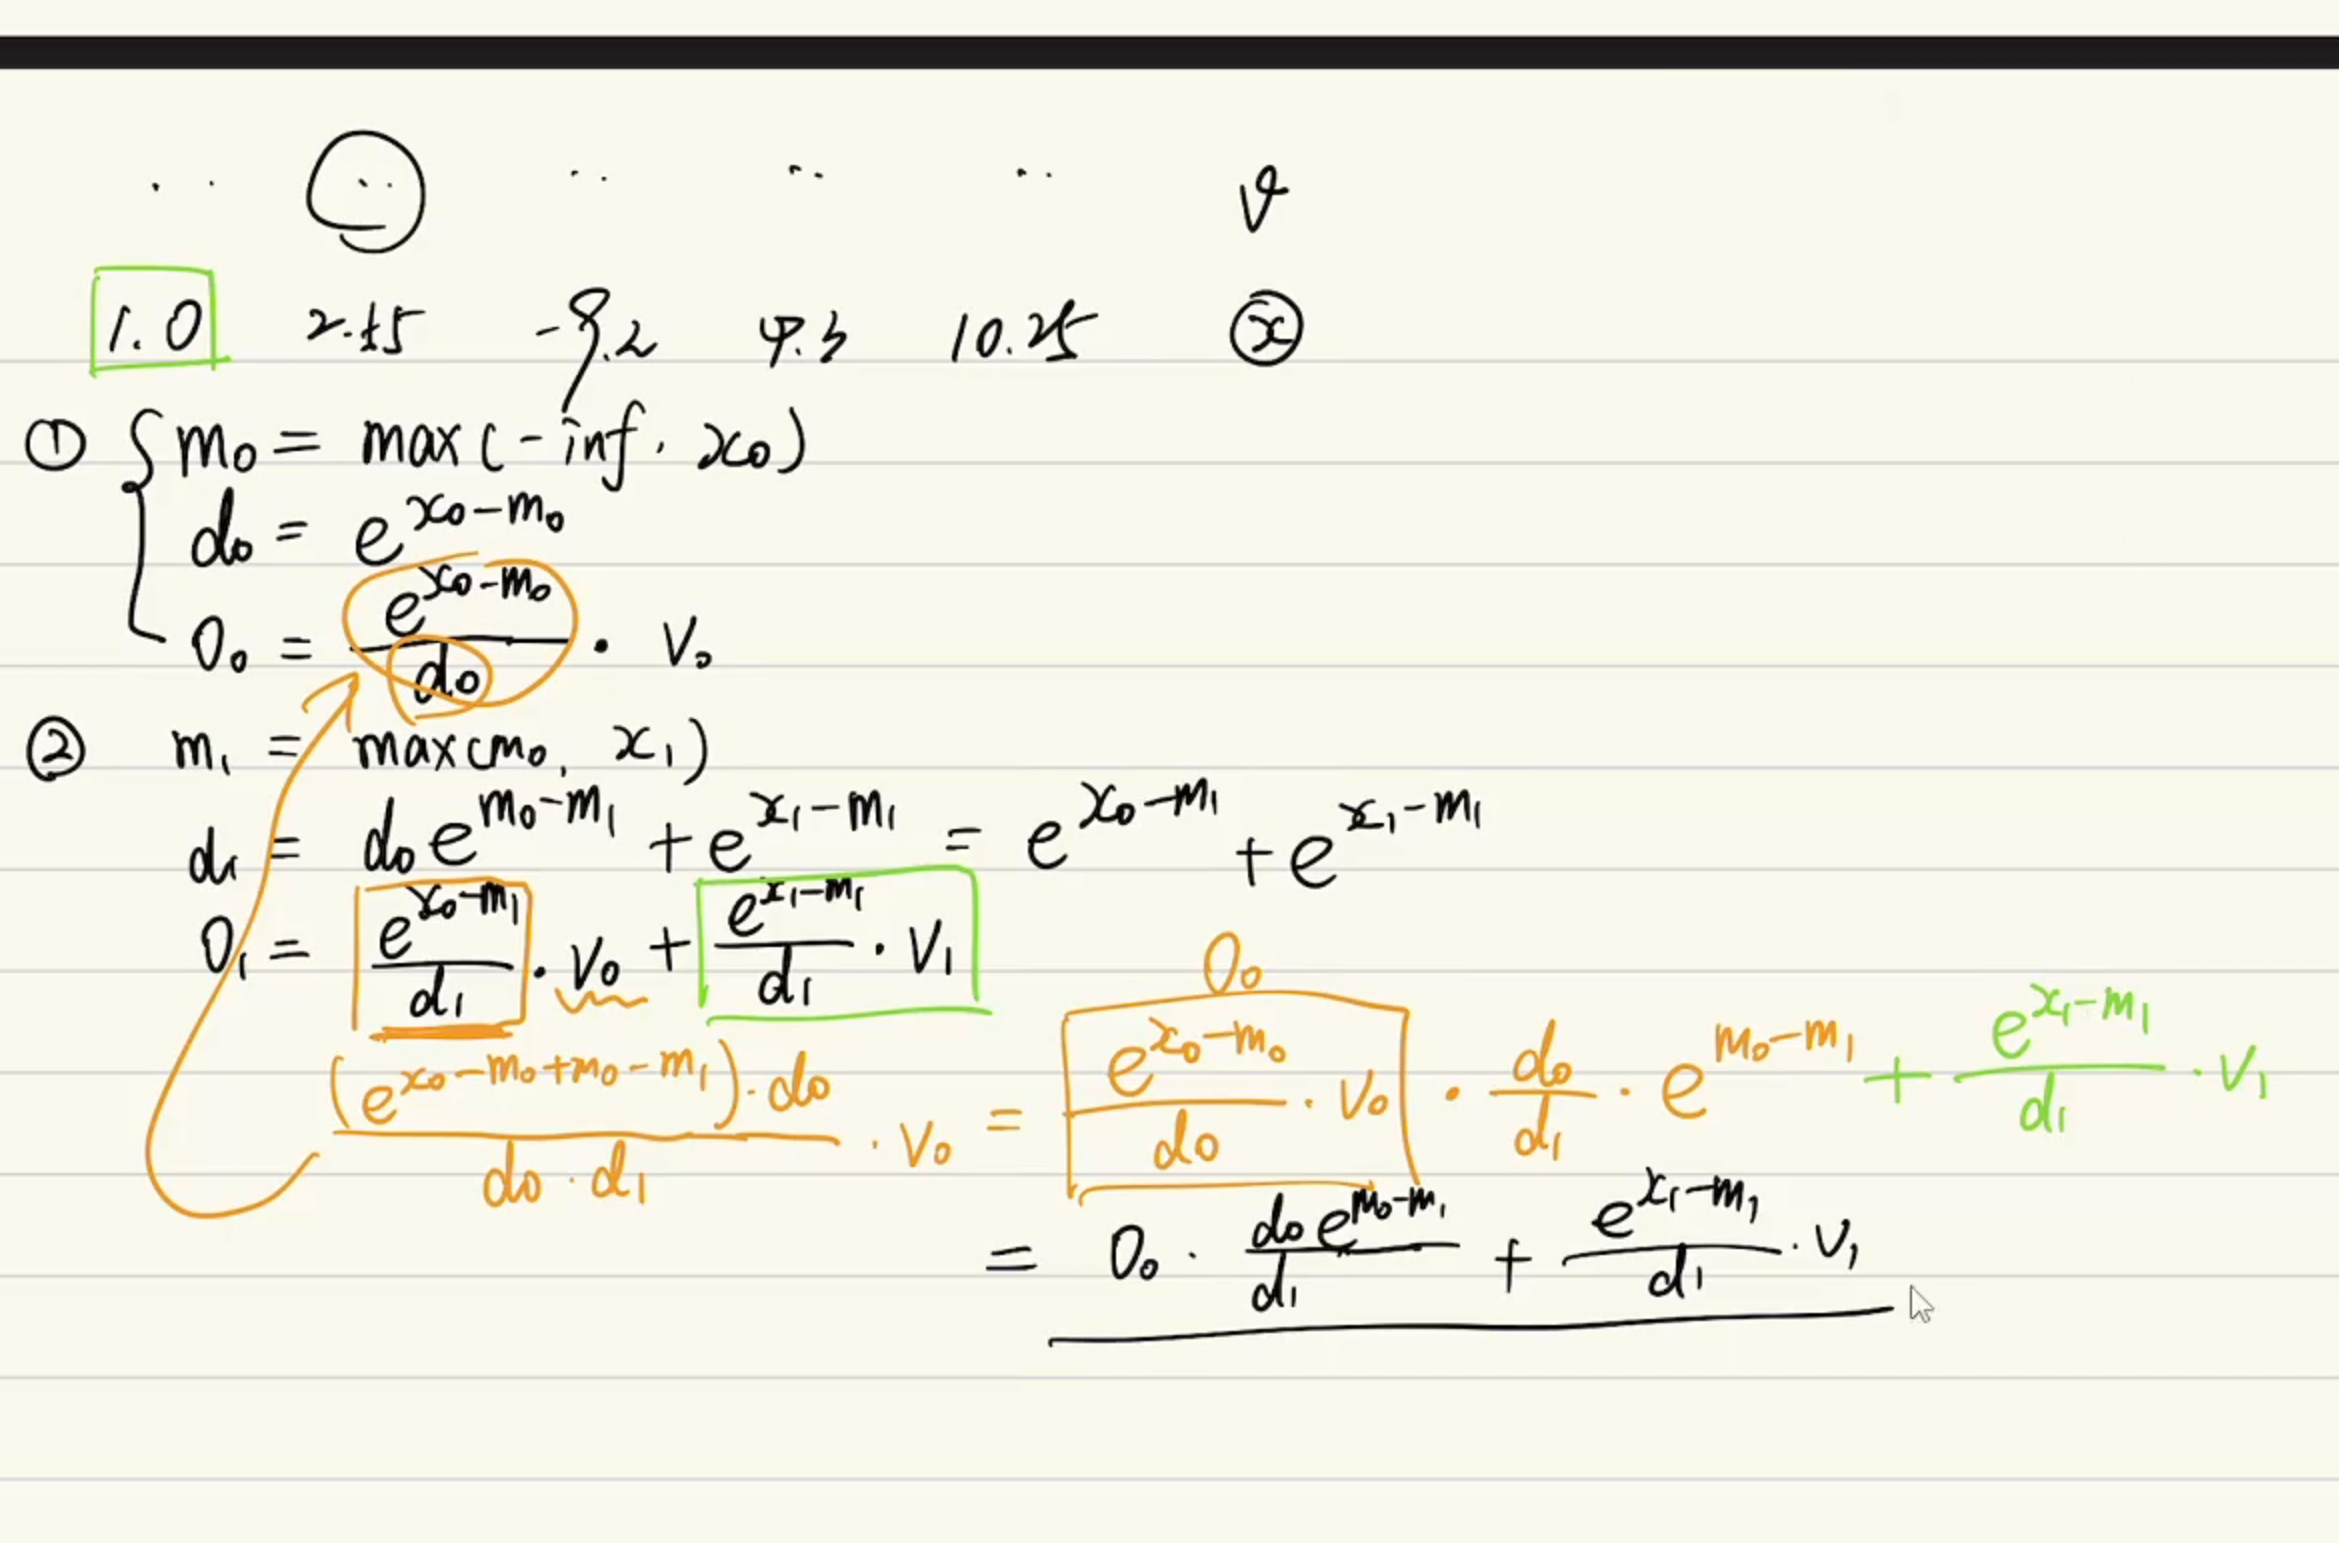 V
1.0 -9.2 4.3 10.25 x
① { m₀ = max(-inf, x₀)
d₀ = e^{x₀-m₀}
O₀ = \frac{e^{x₀-m₀}}{d₀} · V₀
② m₁ = max(m₀, x₁)
d₁ = d₀e^{m₀-m₁} + e^{x₁-m₁} = e^{x₀-m₁} + e^{x₁-m₁}
O₁ = \frac{e^{x₀-m₁}}{d₁} · V₀ + \frac{e^{x₁-m₁}}{d₁} · V₁
O₀
\frac{(e^{x₀-m₀+m₀-m₁})·d₀}{d₀·d₁} · V₀ = \frac{e^{x₀-m₀}}{d₀} · V₀ · \frac{d₀}{d₁} · e^{m₀-m₁} + \frac{e^{x₁-m₁}}{d₁} · V₁
= O₀ · \frac{d₀e^{m₀-m₁}}{d₁} + \frac{e^{x₁-m₁}}{d₁} · V₁